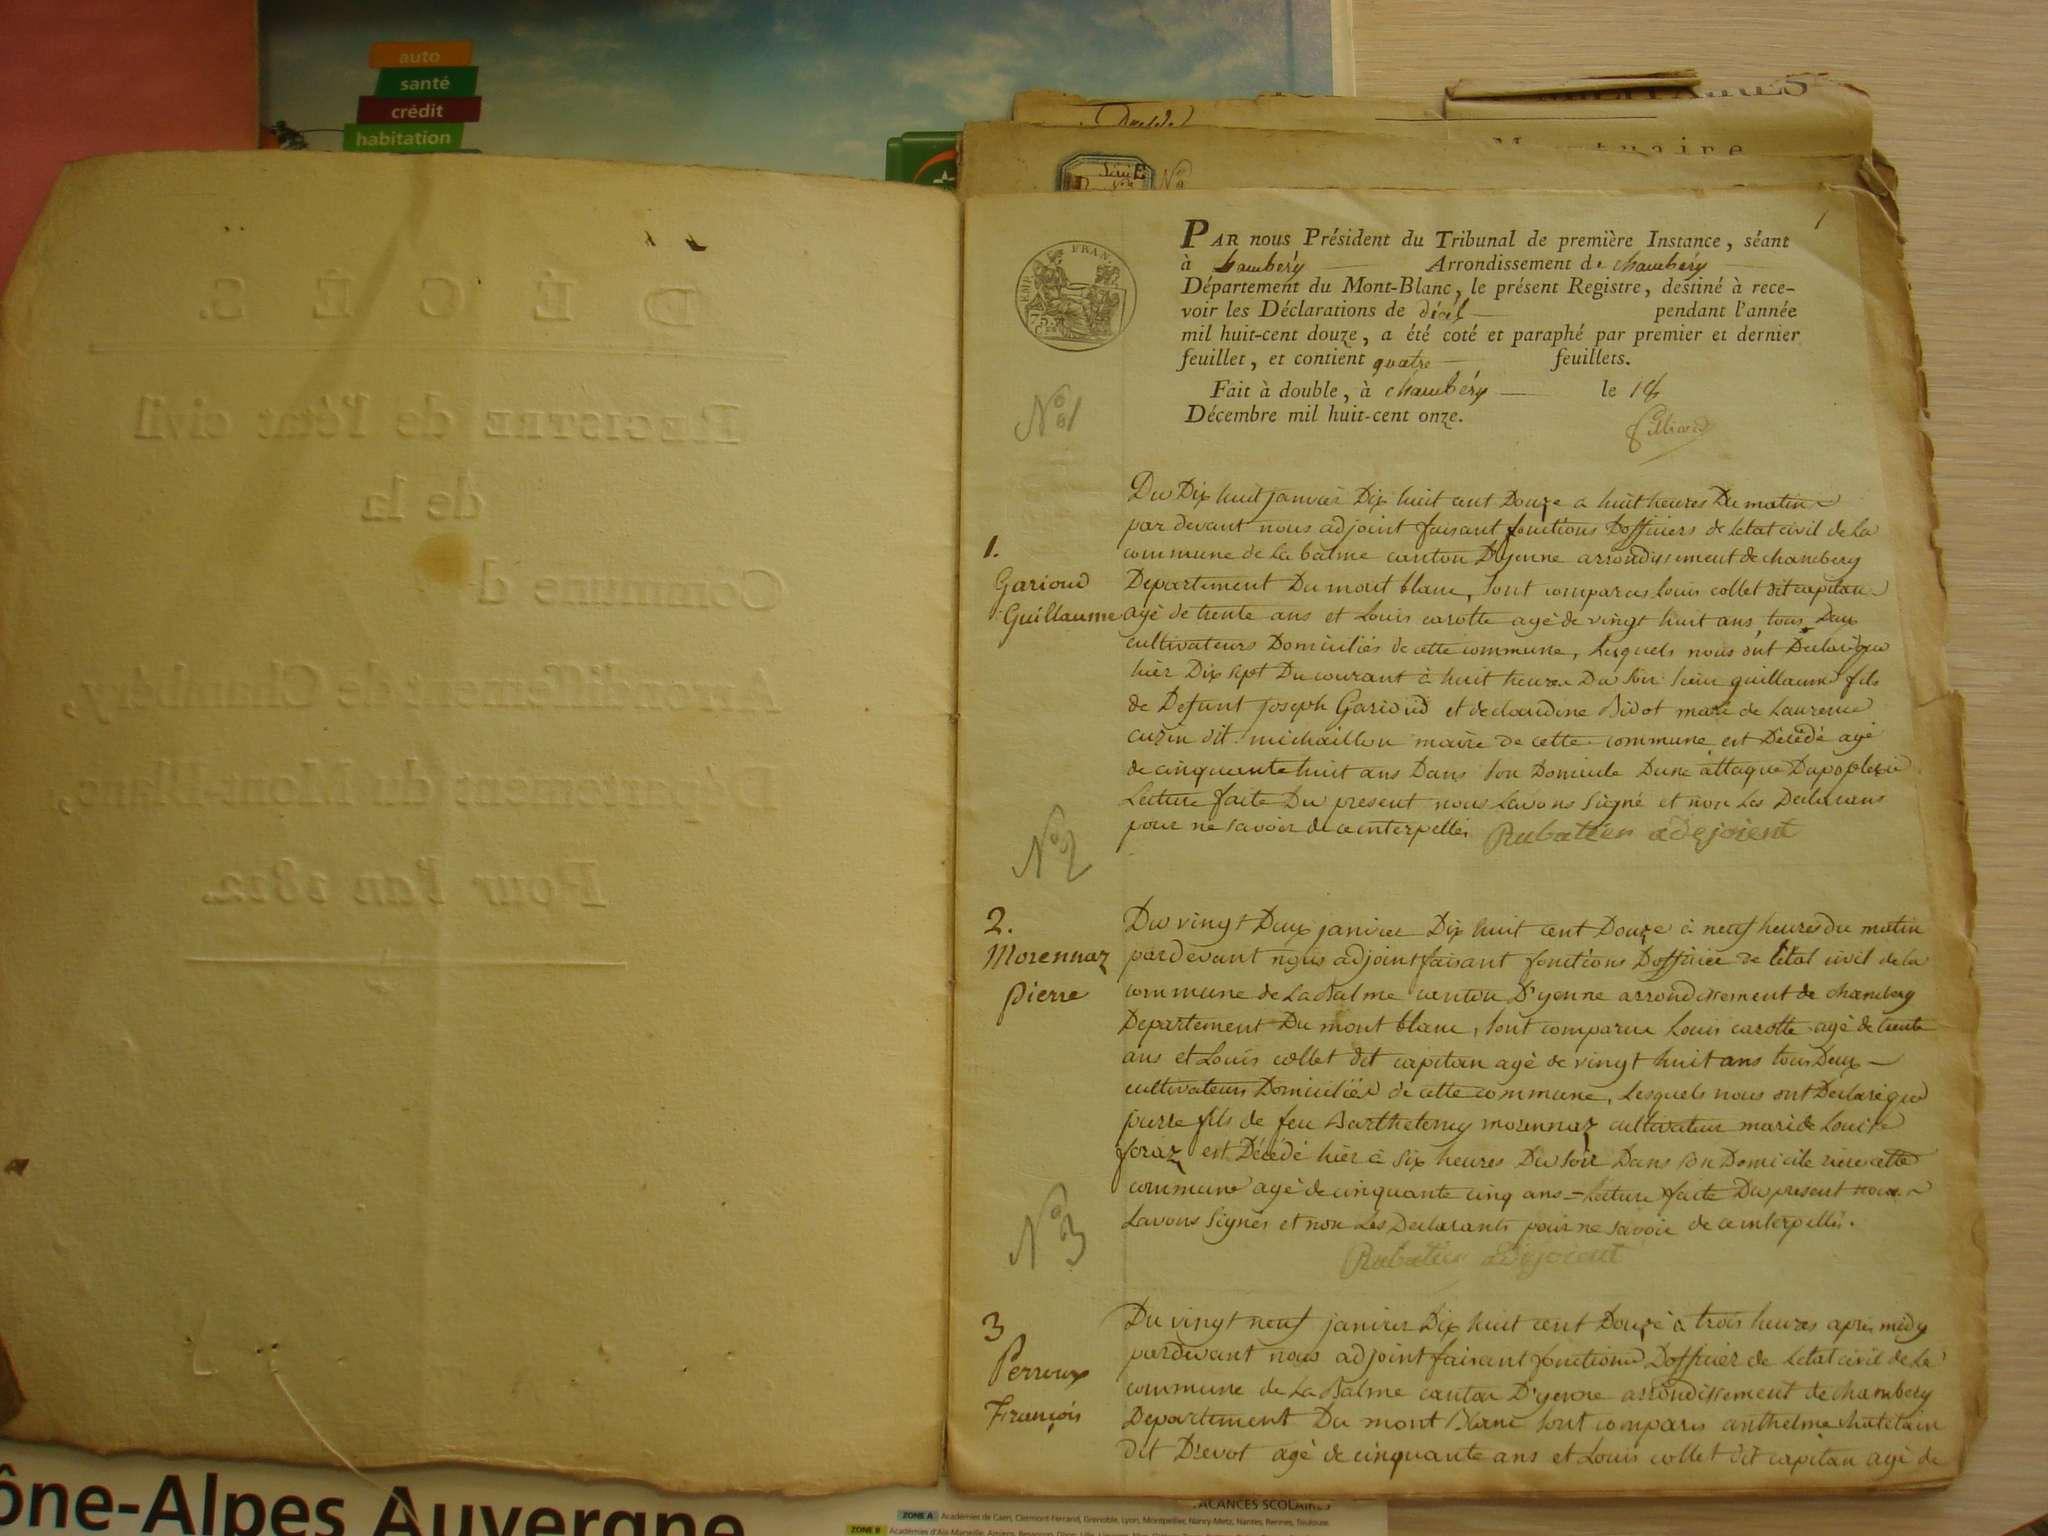 auto
santé
crédit
habitation
DÉCÈS.
REGISTRE de l'état civil
de la
Commune d
Arrondissement de Chambéry,
Département du Mont-Blanc,
Pour l'an 1812.
N°
1
PAR nous Président du Tribunal de première Instance, séant
à Chambéry Arrondissement de Chambéry
Département du Mont-Blanc, le présent Registre, destiné à rece-
voir les Déclarations de décès pendant l'année
mil huit-cent douze, a été coté et paraphé par premier et dernier
feuillet, et contient quatre feuillets.
Fait à double, à Chambéry le 14
Décembre mil huit-cent onze.
EMP. FRAN.
75
N° 1
1.
Garioud
Guillaume
Du Dix huit janvier Dix huit cent Douze a huit heures Du matin
par devant nous adjoint faisant fonctions Dofficiers de letat civil de La
commune de La balme canton D'yenne arrondissement de chambery
Departement Du mont blanc, sont comparus louis collet dit capitan
agé de trente ans et Louis carotte agé de vingt huit ans, tous Deux
cultivateurs Domiciliés de cette commune, Lesquels nous ont Declaré que
hier Dix sept Du courant à huit heures Du soir sieur guillaume fils
de Defunt joseph Garioud et de claudine Bidot mari de Laurence
curin dit michaillon maire de cette commune est Décédé agé
de cinquante huit ans Dans son Domicile Dune attaque Dapoplexie
Lecture faite Du present nous Lavons Signé et non Les Declarans
pour ne savoir de ce interpellés Rubatier adejoient
N° 2
2.
Morennaz
pierre
Du vingt Deux janvier Dix huit cent Douze à neuf heures du matin
pardevant nous adjoint faisant fonctions Dofficier de létat civil de la
commune de La Balme canton D'yenne arrondissement de chambery
Departement Du mont blanc, sont comparus Louis carotte agé de trente
ans et Louis collet dit capitan agé de vingt huit ans tous Deux
cultivateurs Domiciliés de cette commune, Lesquels nous ont Declaré que
pierre fils de feu Barthelemy morennaz cultivateur mari de Louise
foraz est Décédé hier à six heures Du soir Dans son Domicile riere cette
commune agé de cinquante cinq ans = Lecture faite Du present nous
Lavons Signés et non Les Declarants pour ne savoir de ce interpellés.
Rubatier adejoient
N° 3
3
Perroux
François
Du vingt neuf janvier Dix huit cent Douze à trois heures après midy
pardevant nous adjoint faisant fonctions Dofficier de Letat civil de La
commune de La Balme canton D'yenne arrondissement de chambery
Departement Du mont Blanc sont comparus anthelme chatelain
dit D'evot agé de cinquante ans et Louis collet dit capitan agé de
ône-Alpes Auvergne
VACANCES SCOLAIRES
ZONE A Académies de Caen, Clermont-Ferrand, Grenoble, Lyon, Montpellier, Nancy-Metz, Nantes, Rennes, Toulouse.
ZONE B